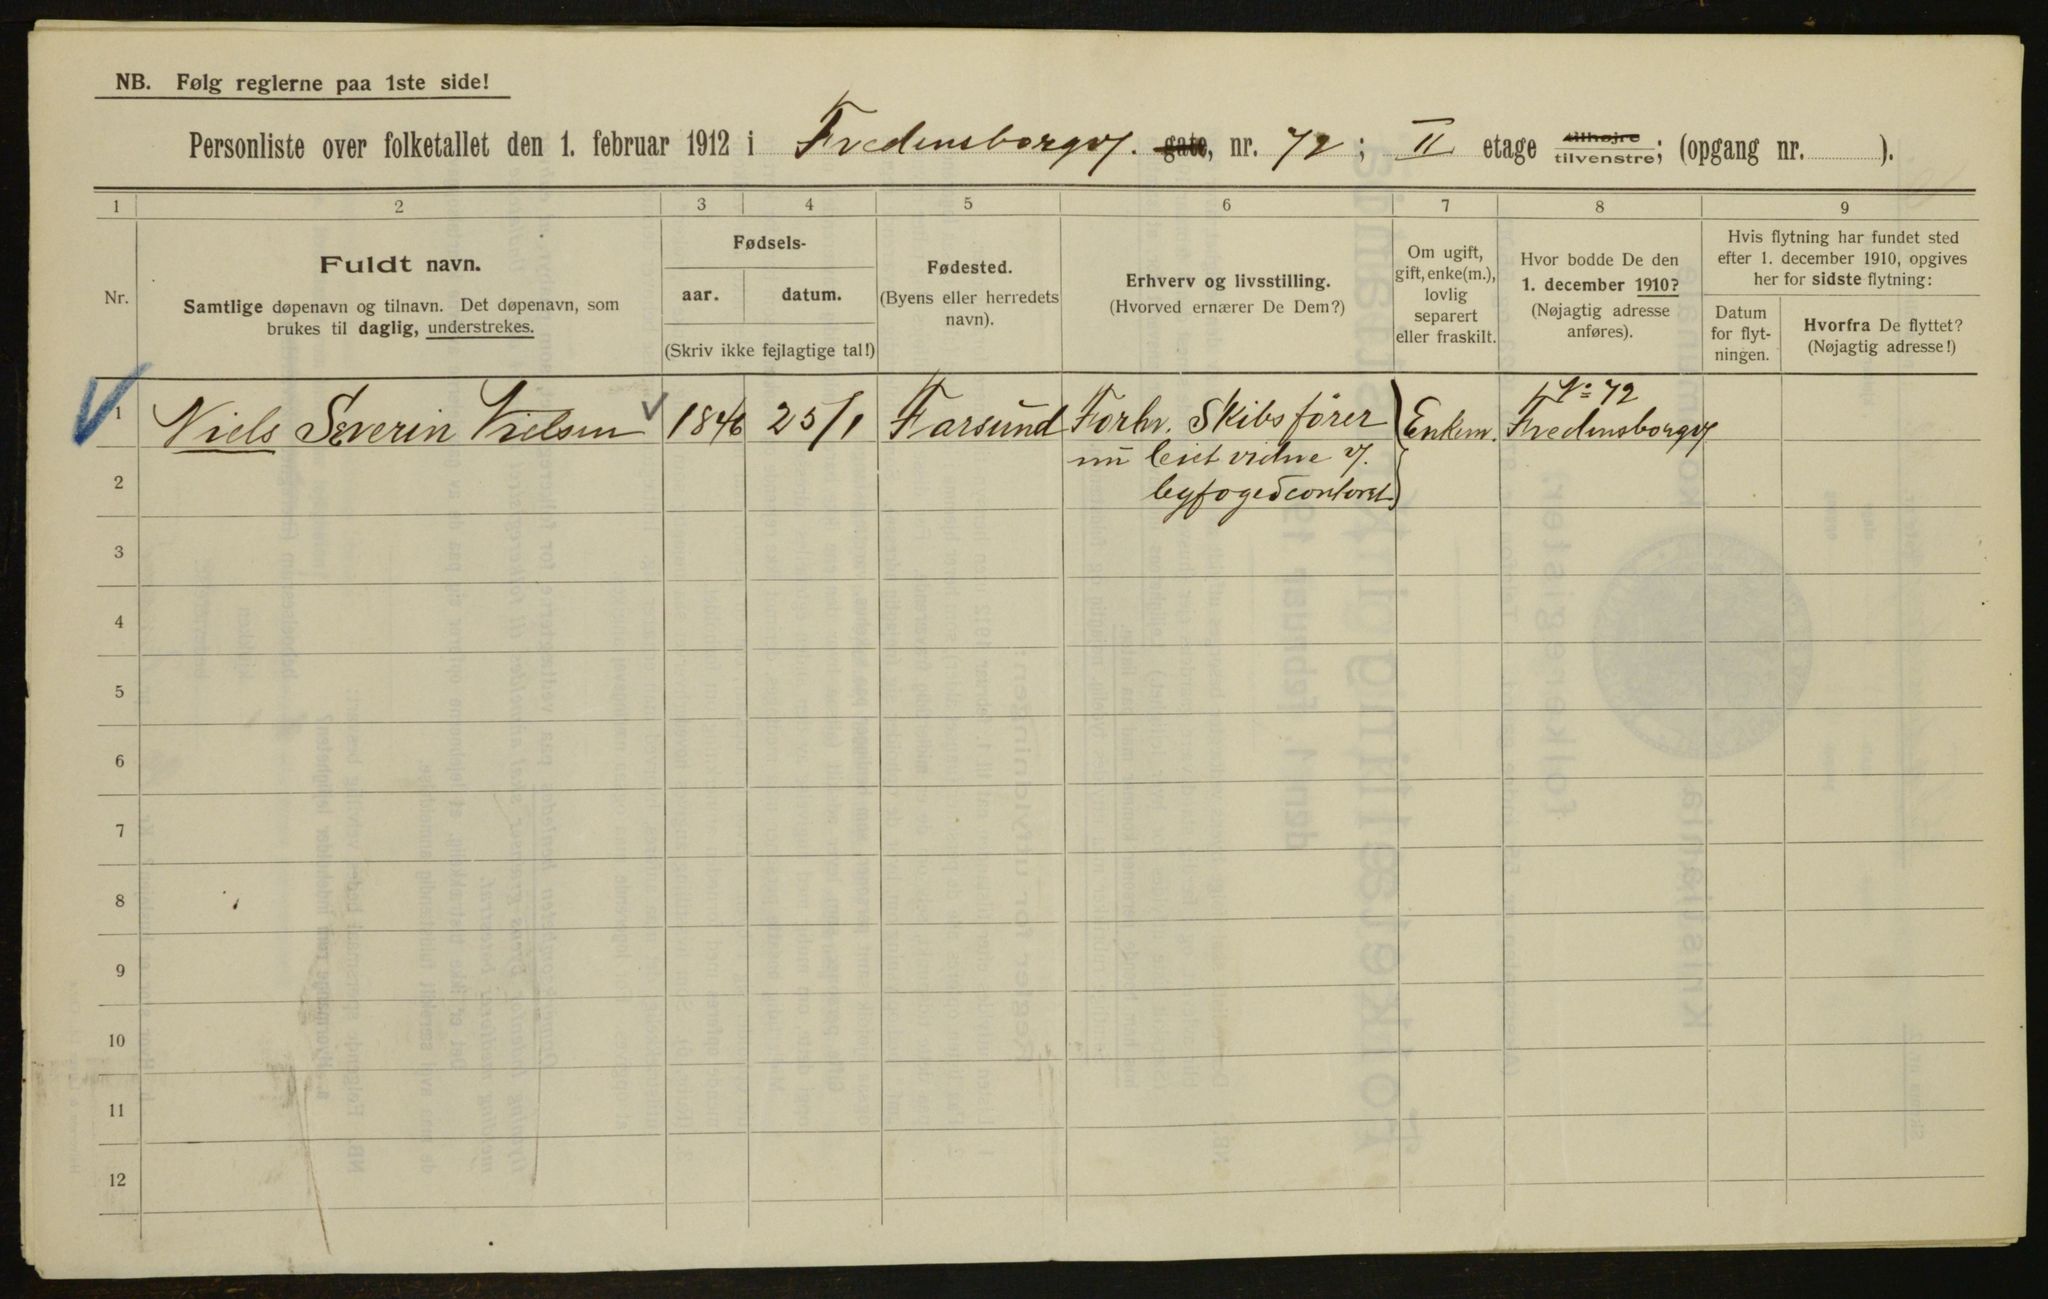 NB. Følg reglerne paa 1ste side!
Personliste over folketallet den 1. februar 1912 i Fredensborgv. gate, nr. 72; II etage tilhøjre tilvenstre; (opgang nr. ).
1 2 3 4 5 6 7 8 9
Nr.
Fuldt navn.
Samtlige døpenavn og tilnavn. Det døpenavn, som
brukes til daglig, understrekes.
Fødsels-
aar. datum.
(Skriv ikke fejlagtige tal!)
Fødested.
(Byens eller herredets
navn).
Erhverv og livsstilling.
(Hvorved ernærer De Dem?)
Om ugift,
gift, enke(m.),
lovlig
separert
eller fraskilt.
Hvor bodde De den
1. december 1910?
(Nøjagtig adresse
anføres).
Hvis flytning har fundet sted
efter 1. december 1910, opgives
her for sidste flytning:
Datum
for flyt-
ningen.
Hvorfra De flyttet?
(Nøjagtig adresse!)
No 72
1 Niels Severin Nielsen 1846 25/1 Farsund Forhv. Skibsfører Enkem. Fredensborgv
2 nu leiet vidne v.
byfogedcontoret
3
4
5
6
7
8
9
10
11
12